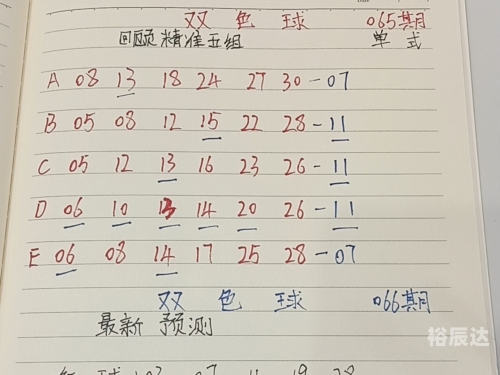 双 色 球 065期
回顾精准五组 单 式
A 08 13 18 24 27 30-07
B 05 08 12 15 22 28-11
C 05 12 13 16 23 26-11
D 06 10 13 14 20 26-11
E 06 08 14 17 25 28-07
双 色 球 066期
最新 预测
裕辰达